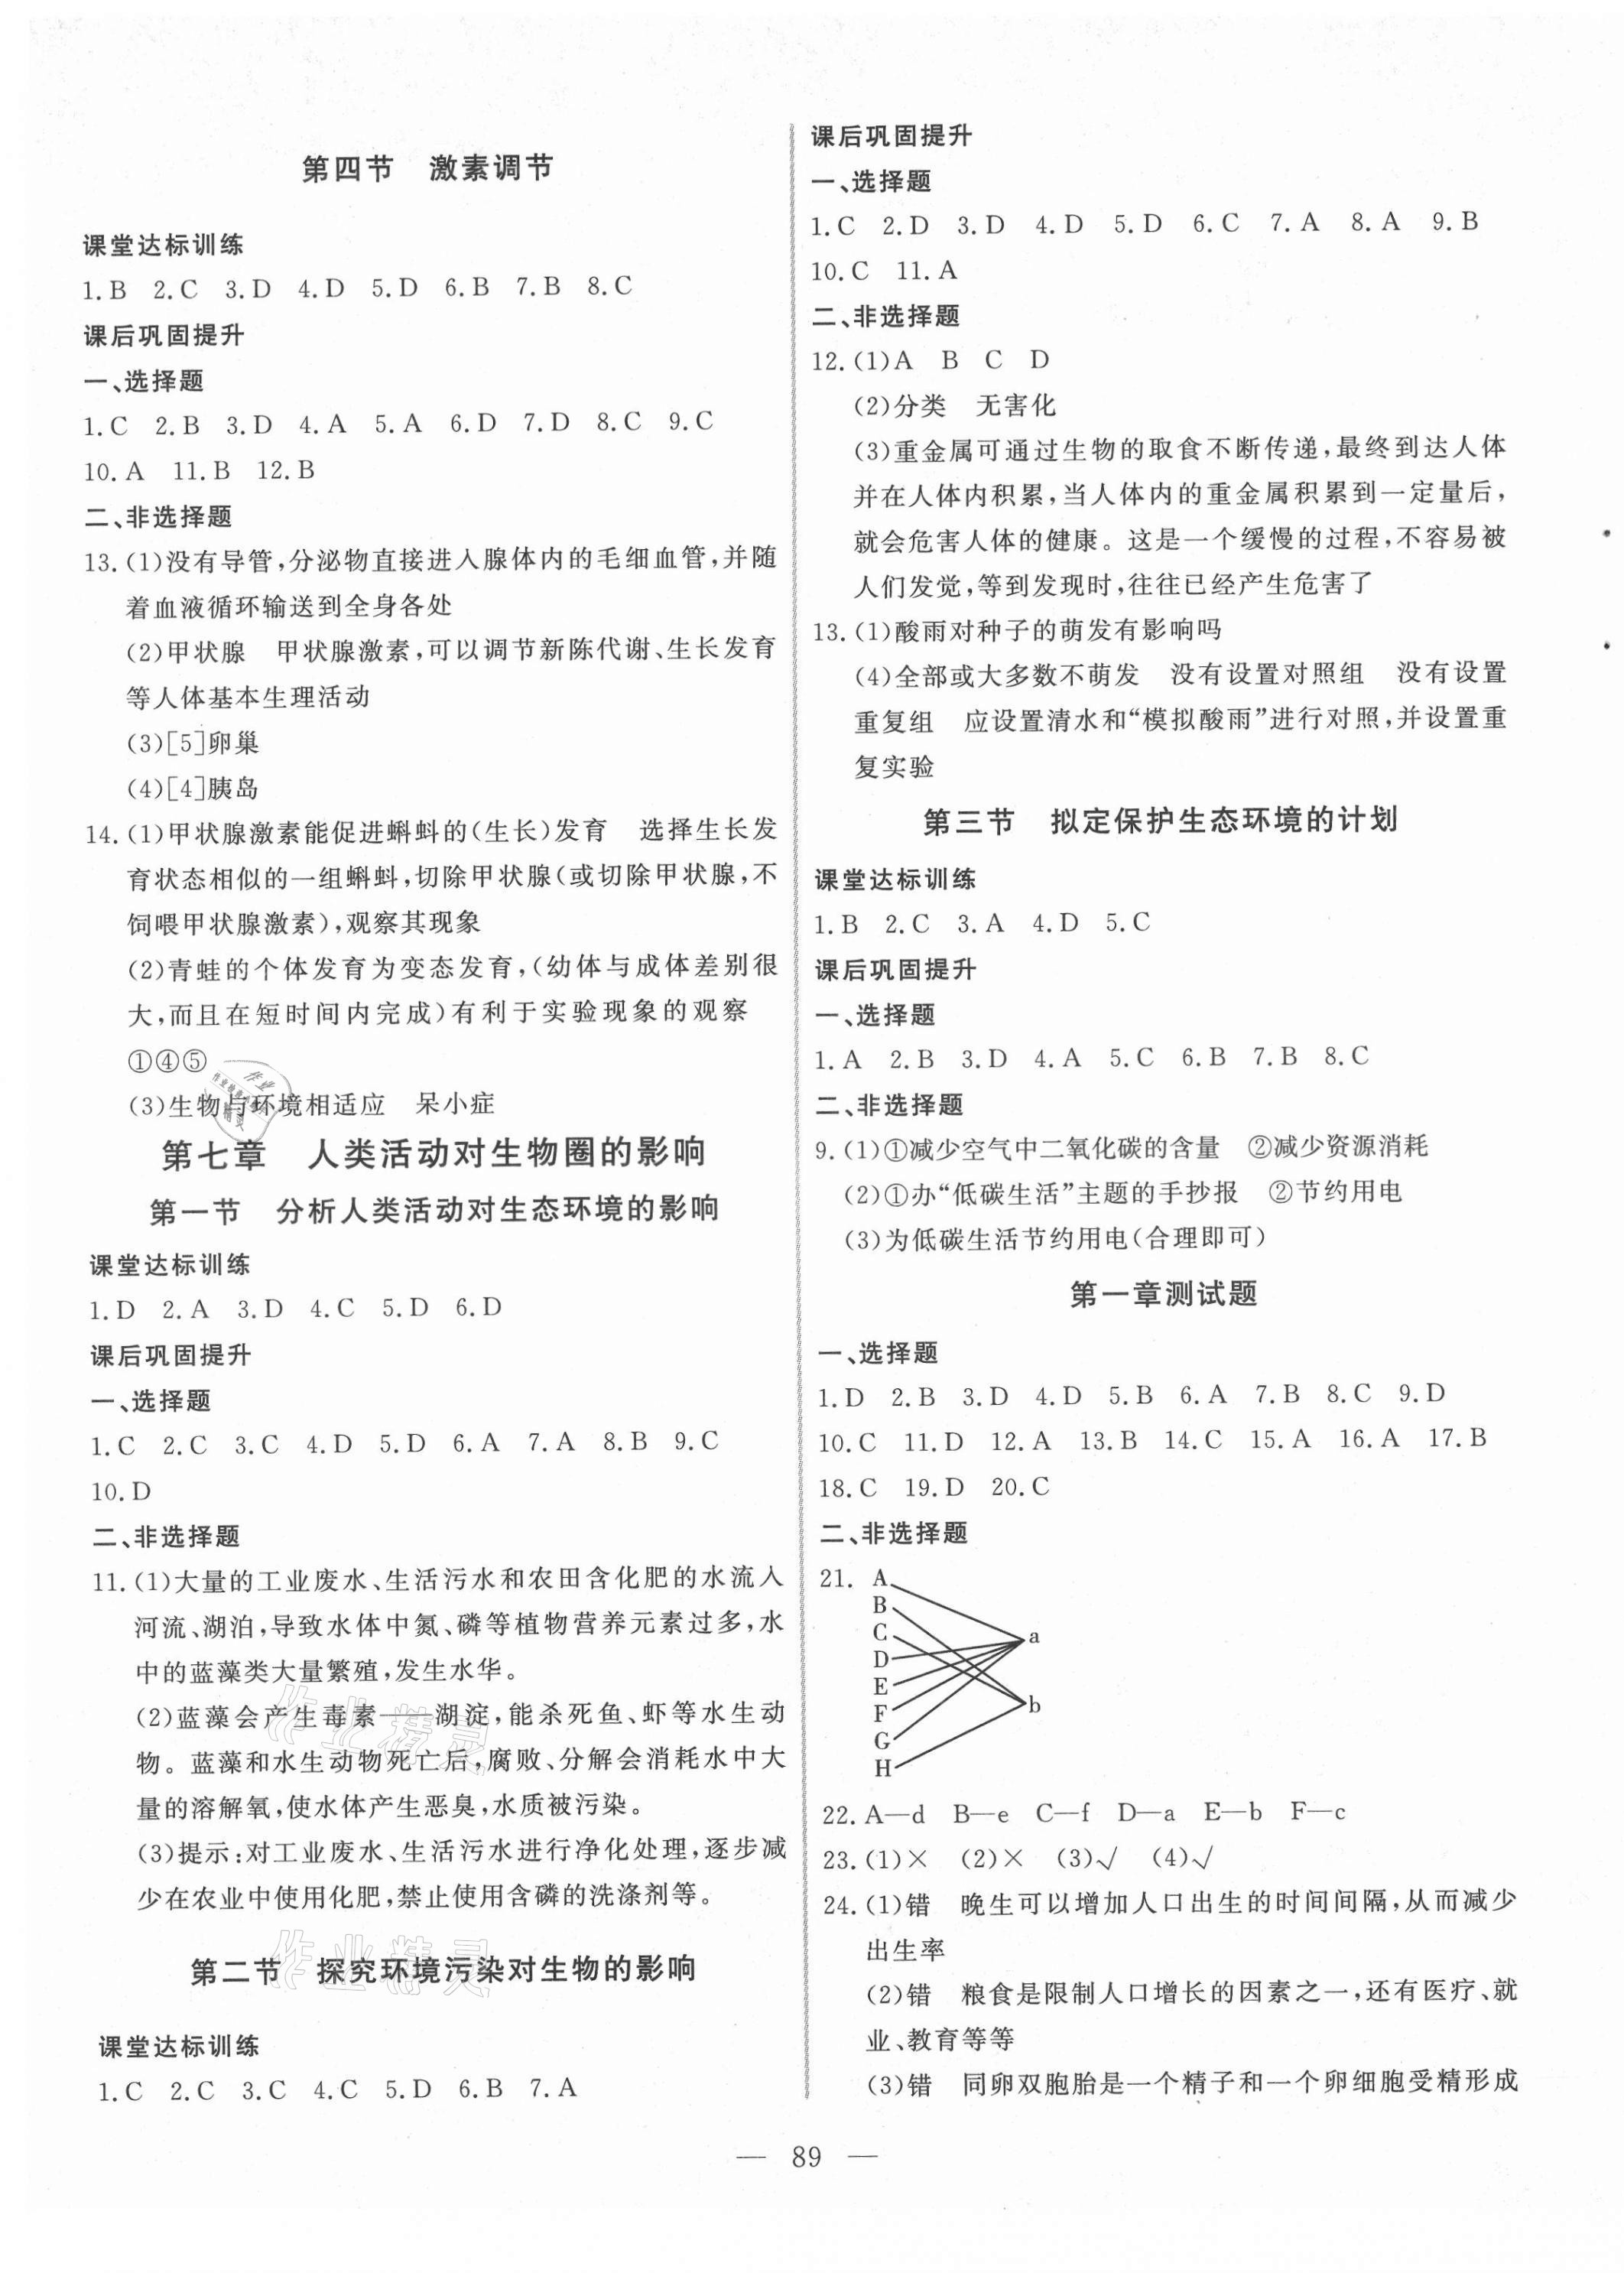 第四节　激素调节
课堂达标训练
1.B 2.C 3.D 4.D 5.D 6.B 7.B 8.C
课后巩固提升
一、选择题
1.C 2.B 3.D 4.A 5.A 6.D 7.D 8.C 9.C
10.A 11.B 12.B
二、非选择题
13.(1)没有导管,分泌物直接进入腺体内的毛细血管,并随
着血液循环输送到全身各处
(2)甲状腺　甲状腺激素,可以调节新陈代谢、生长发育
等人体基本生理活动
(3)[5]卵巢
(4)[4]胰岛
14.(1)甲状腺激素能促进蝌蚪的(生长)发育　选择生长发
育状态相似的一组蝌蚪,切除甲状腺(或切除甲状腺,不
饲喂甲状腺激素),观察其现象
(2)青蛙的个体发育为变态发育,(幼体与成体差别很
大,而且在短时间内完成)有利于实验现象的观察
①④⑤
(3)生物与环境相适应　呆小症
第七章　人类活动对生物圈的影响
第一节　分析人类活动对生态环境的影响
课堂达标训练
1.D 2.A 3.D 4.C 5.D 6.D
课后巩固提升
一、选择题
1.C 2.C 3.C 4.D 5.D 6.A 7.A 8.B 9.C
10.D
二、非选择题
11.(1)大量的工业废水、生活污水和农田含化肥的水流入
河流、湖泊,导致水体中氮、磷等植物营养元素过多,水
中的蓝藻类大量繁殖,发生水华。
(2)蓝藻会产生毒素——湖淀,能杀死鱼、虾等水生动
物。蓝藻和水生动物死亡后,腐败、分解会消耗水中大
量的溶解氧,使水体产生恶臭,水质被污染。
(3)提示:对工业废水、生活污水进行净化处理,逐步减
少在农业中使用化肥,禁止使用含磷的洗涤剂等。
作业精灵
第二节　探究环境污染对生物的影响
作业精灵
课堂达标训练
1.C 2.C 3.C 4.C 5.D 6.B 7.A
课后巩固提升
一、选择题
1.C 2.D 3.D 4.D 5.D 6.C 7.A 8.A 9.B
10.C 11.A
二、非选择题
12.(1)A B C D
(2)分类　无害化
(3)重金属可通过生物的取食不断传递,最终到达人体
并在人体内积累,当人体内的重金属积累到一定量后,
就会危害人体的健康。这是一个缓慢的过程,不容易被
人们发觉,等到发现时,往往已经产生危害了
13.(1)酸雨对种子的萌发有影响吗
(4)全部或大多数不萌发　没有设置对照组　没有设置
重复组　应设置清水和“模拟酸雨”进行对照,并设置重
复实验
第三节　拟定保护生态环境的计划
课堂达标训练
1.B 2.C 3.A 4.D 5.C
课后巩固提升
一、选择题
1.A 2.B 3.D 4.A 5.C 6.B 7.B 8.C
二、非选择题
9.(1)①减少空气中二氧化碳的含量　②减少资源消耗
(2)①办“低碳生活”主题的手抄报　②节约用电
(3)为低碳生活节约用电(合理即可)
第一章测试题
一、选择题
1.D 2.B 3.D 4.D 5.B 6.A 7.B 8.C 9.D
10.C 11.D 12.A 13.B 14.C 15.A 16.A 17.B
18.C 19.D 20.C
二、非选择题
21. A
B
C
a
D
E
b
F
G
H
22.A—d B—e C—f D—a E—b F—c
23.(1)× (2)× (3)√ (4)√
24.(1)错　晚生可以增加人口出生的时间间隔,从而减少
出生率
(2)错　粮食是限制人口增长的因素之一,还有医疗、就
业、教育等等
(3)错　同卵双胞胎是一个精子和一个卵细胞受精形成
— 89 —